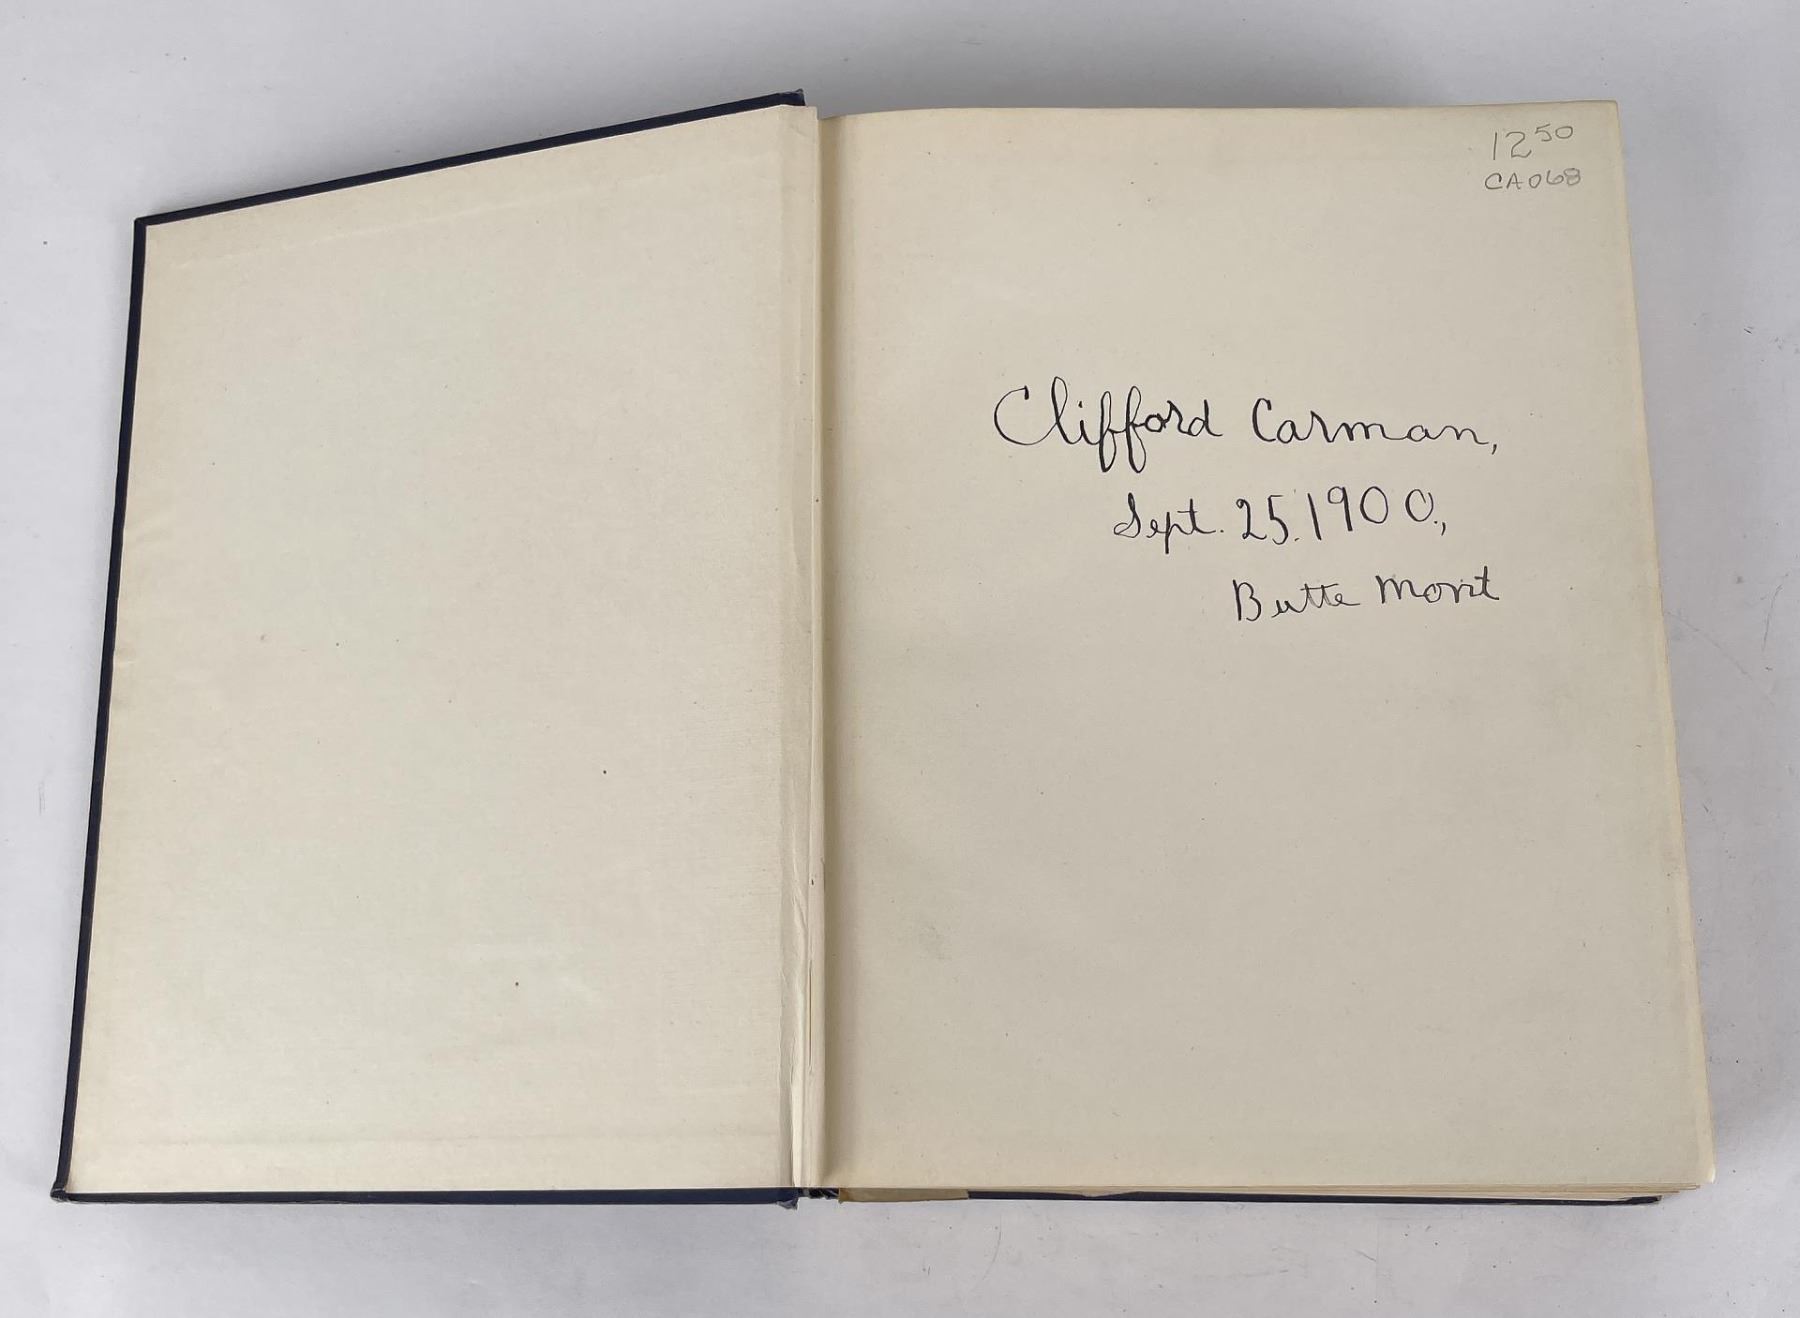 12 50
CA068
Clifford Carman,
Sept. 25. 1900.,
Butte Mont